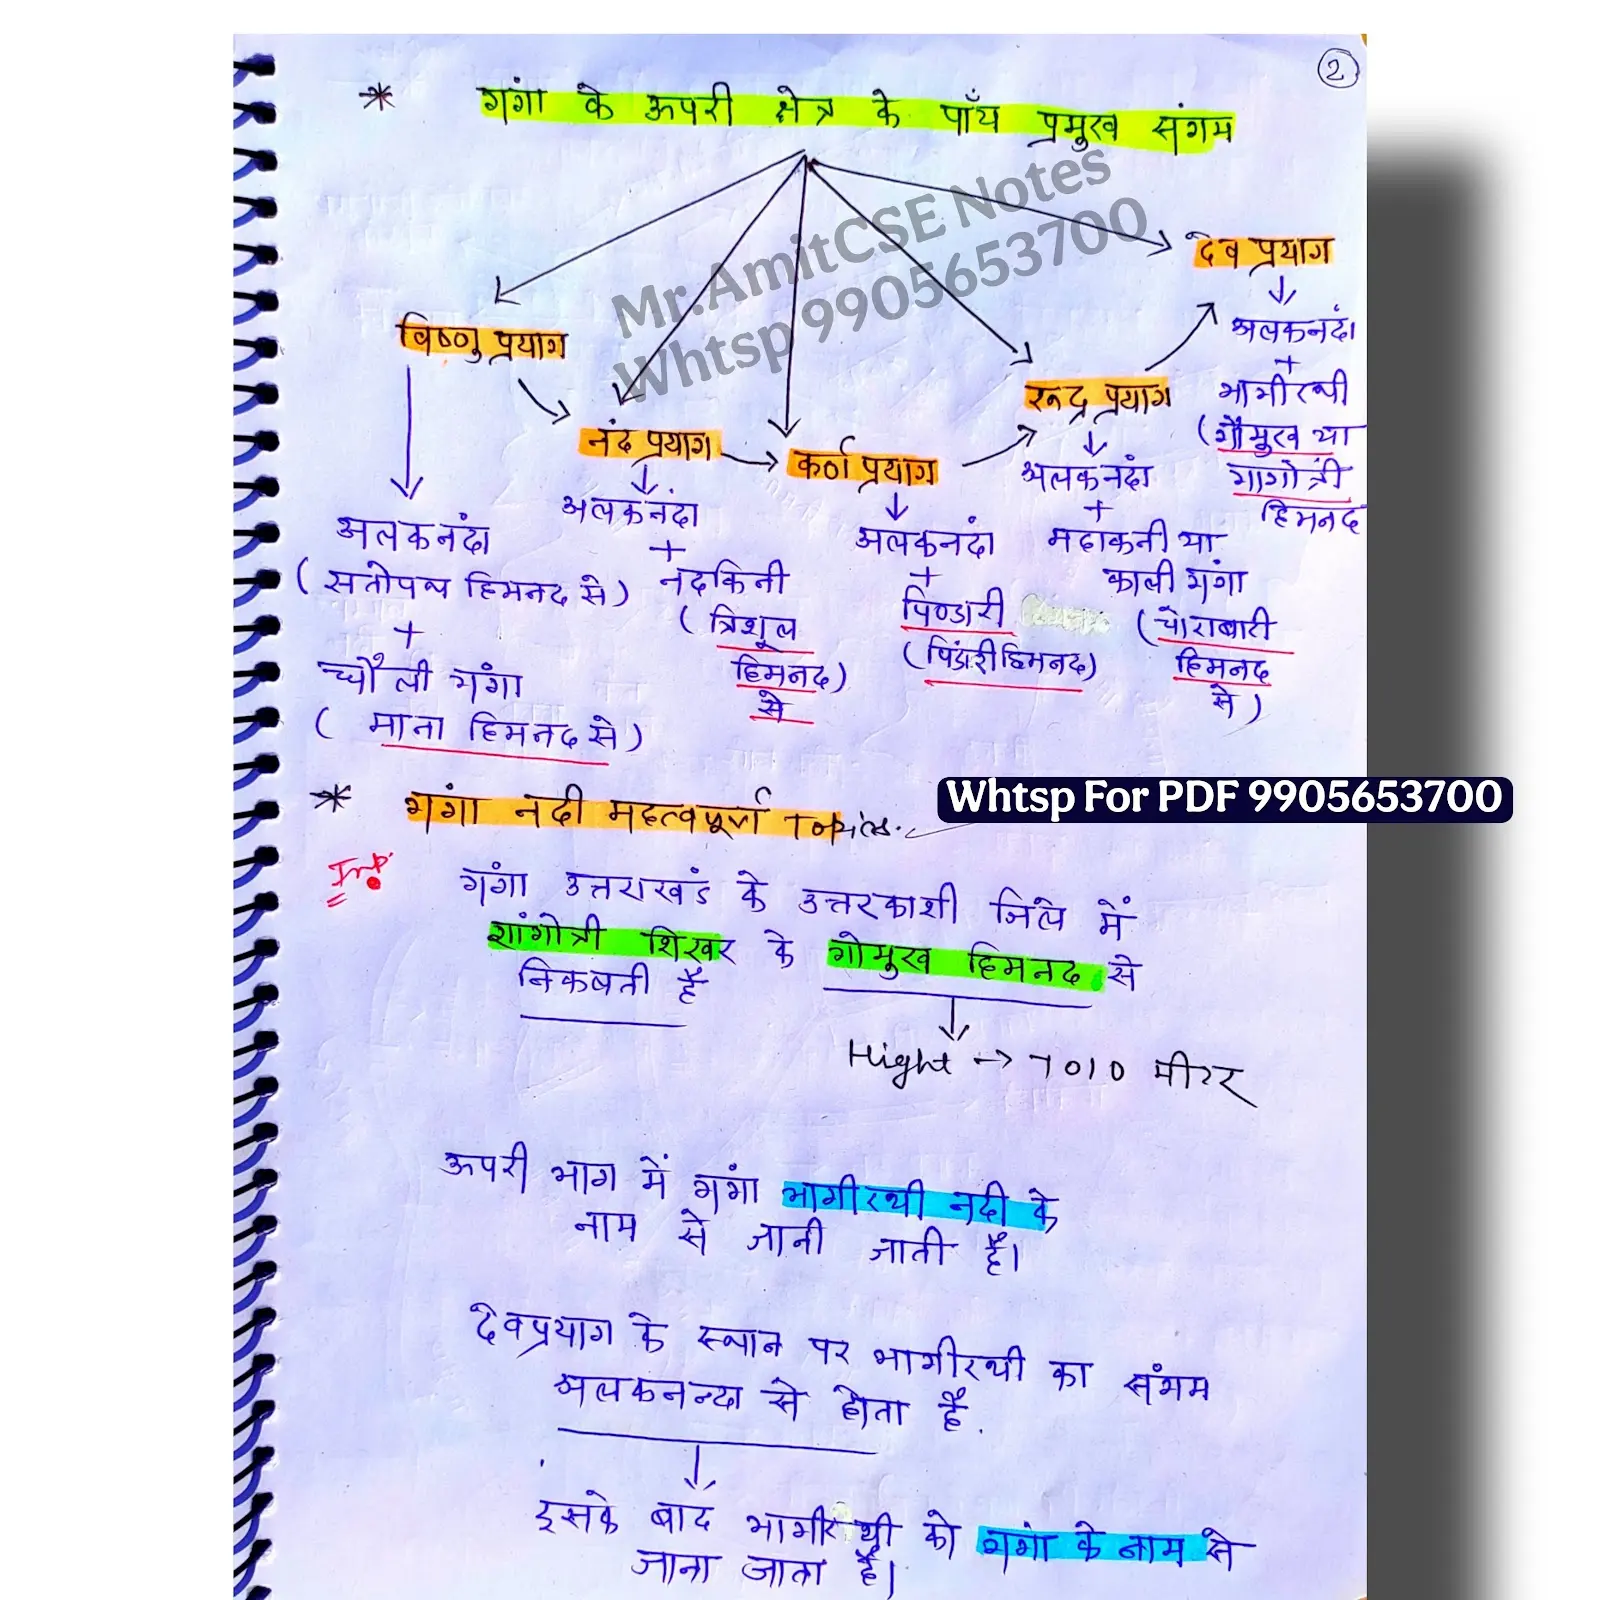 2
* गंगा के ऊपरी क्षेत्र के पाँच प्रमुख संगम
Mr.AmitCSE Notes
Whtsp 9905653700
विष्णु प्रयाग
अलकनंदा
(सतोपथ हिमनद से)
+
धौली गंगा
(माना हिमनद से)
नंद प्रयाग
अलकनंदा
+
नंदकिनी
(त्रिशूल
हिमनद)
से
कर्ण प्रयाग
अलकनंदा
+
पिण्डारी
(पिंडारी हिमनद)
रूद्र प्रयाग
अलकनंदा
+
मदाकनी या
काली गंगा
(चोराबारी
हिमनद
से)
देव प्रयाग
अलकनंदा
+
भागीरथी
(गौमुख या
गागोत्री
हिमनद
* गंगा नदी महत्वपूर्ण
Whtsp For PDF 9905653700
Imp
गंगा उत्तराखंड के उत्तरकाशी जिले में
गांगोत्री शिखर के गोमुख हिमनद से
निकलती है
Hight → 7010 मीटर
ऊपरी भाग में गंगा भागीरथी नदी के
नाम से जानी जाती है।
देवप्रयाग के स्थान पर भागीरथी का संगम
अलकनन्दा से होता है.
इसके बाद भागीरथी को गंगा के नाम से
जाना जाता है।